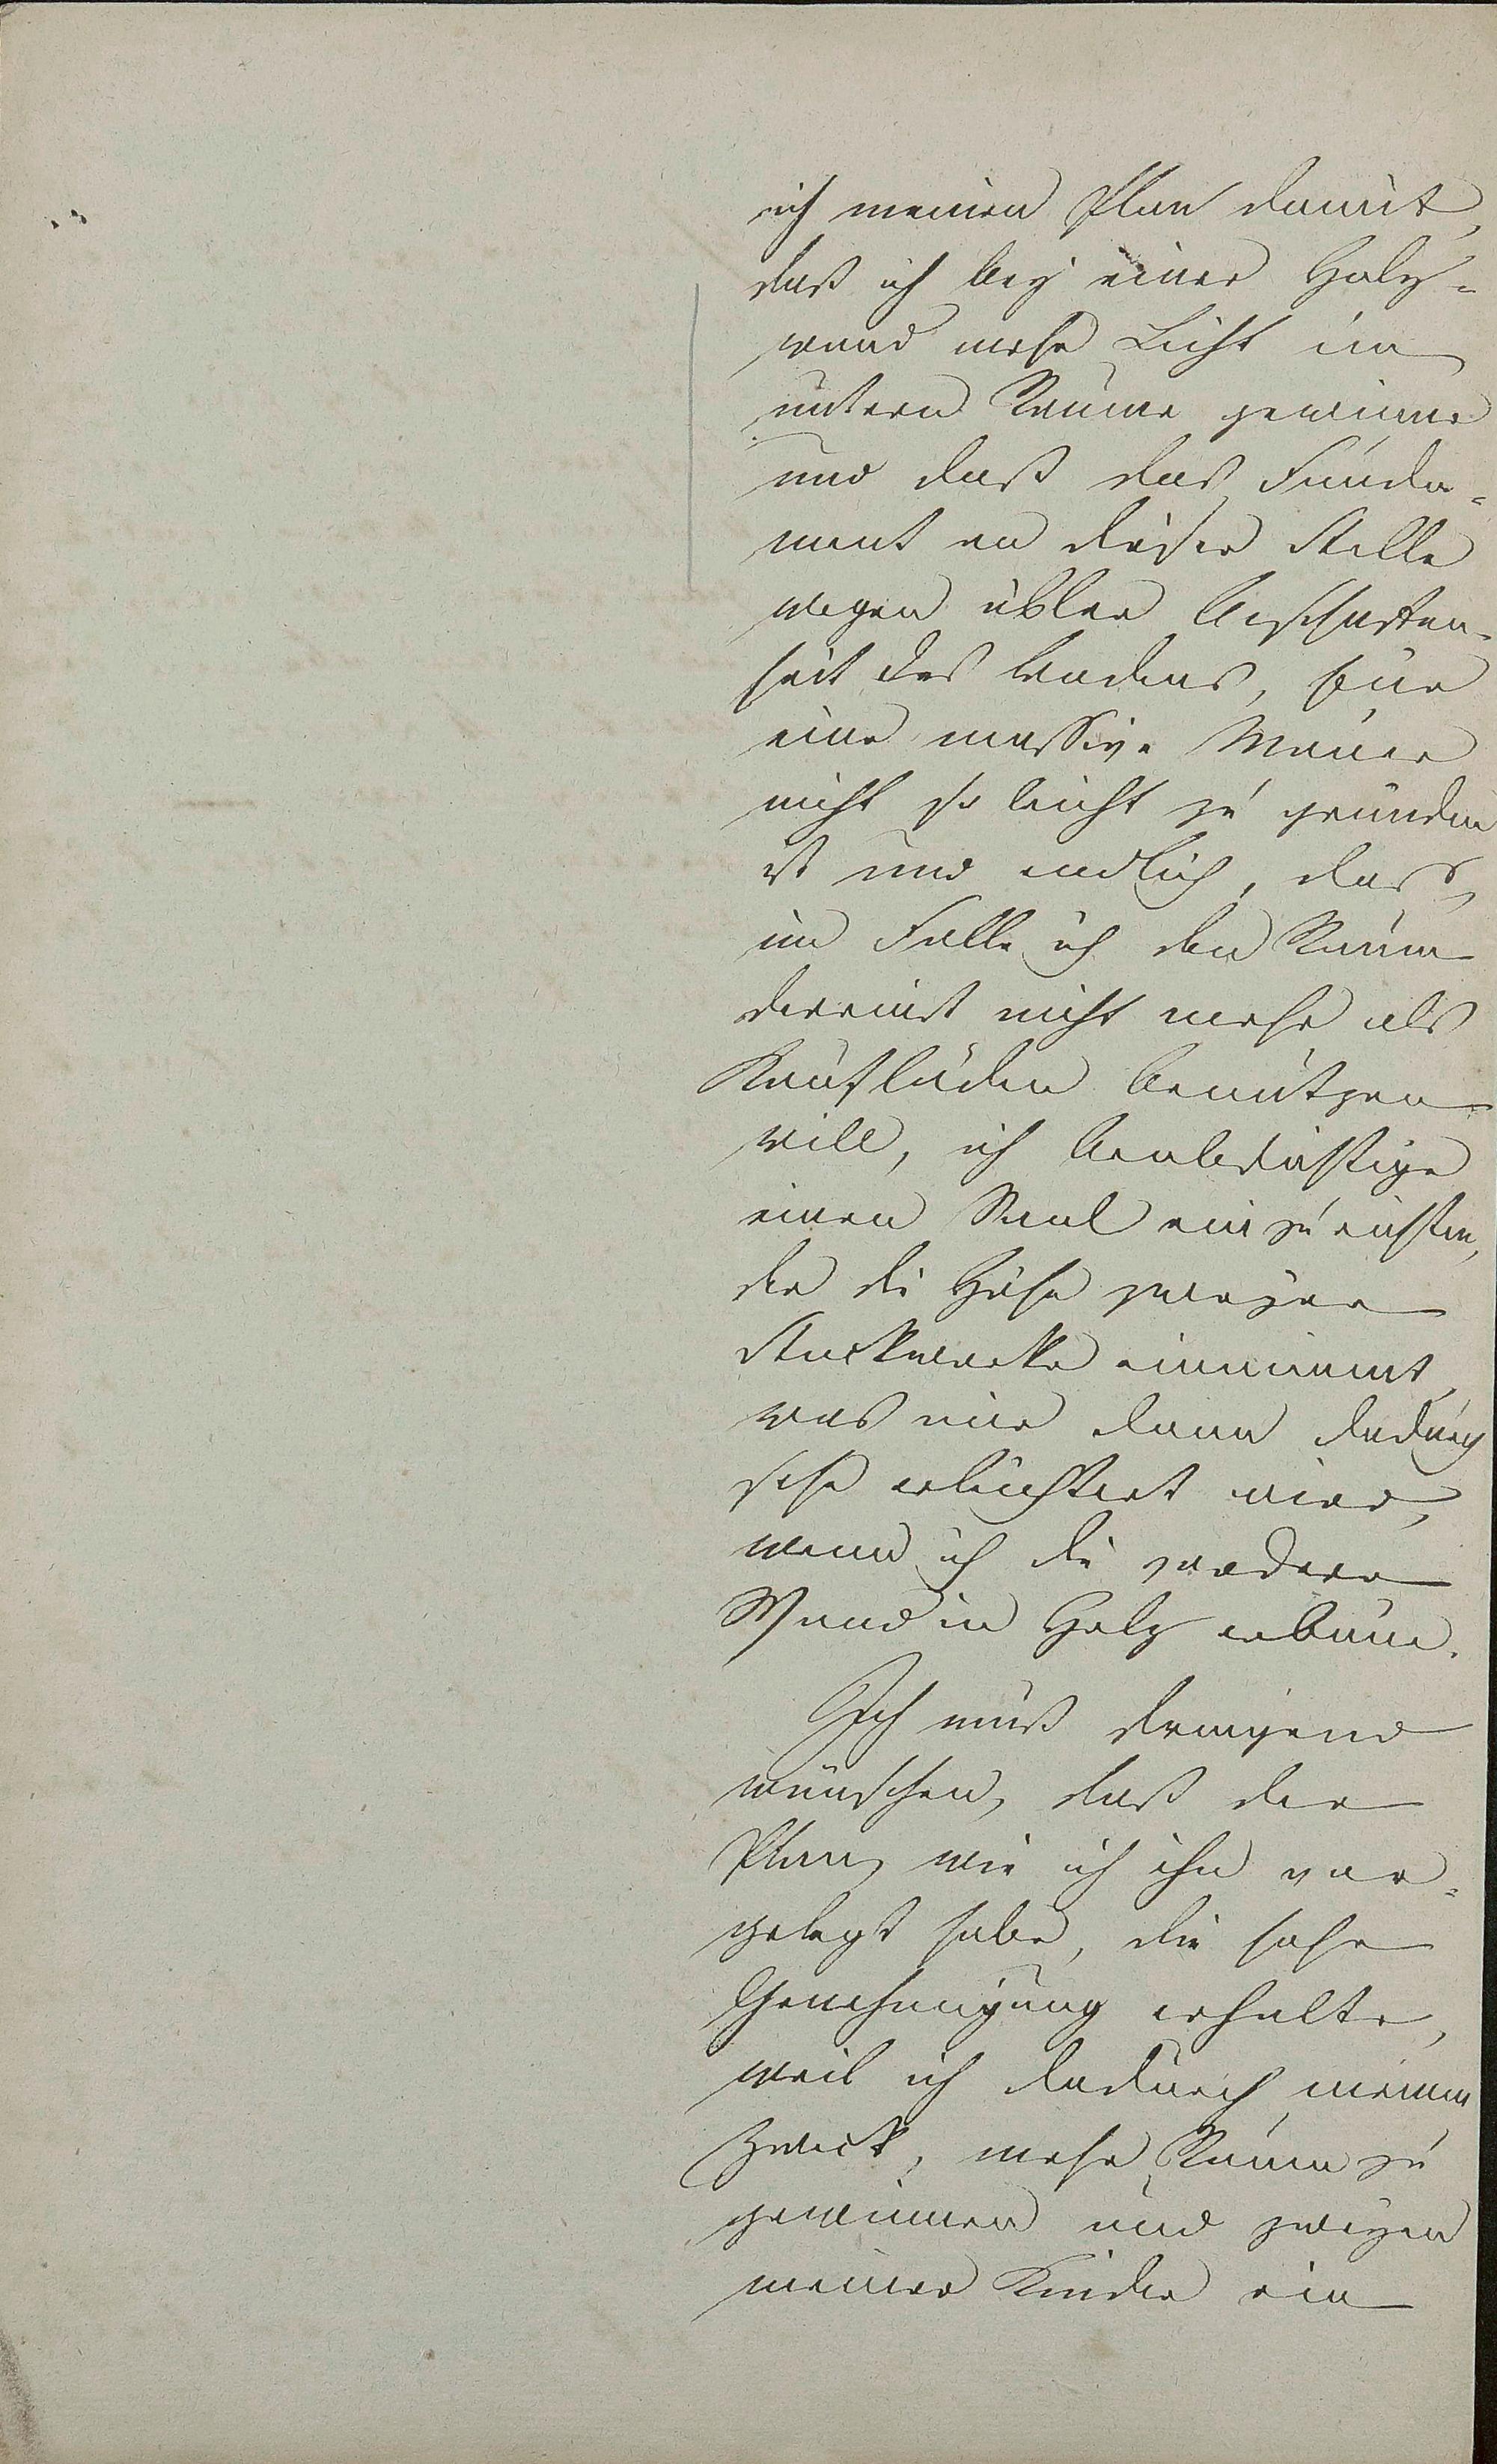 ich meinen Plan damit,
daß ich bey einer Holz-
wand mehr Licht im
untern Raume gewinne
und daß das Funda-
ment an dieser Stelle
wegen übler Beschaffen-
heit des Bodens, für
eine massive Mauer
nicht so leicht zu gründen
ist und endlich, dass,
im Falle ich den Raum
dereinst nicht mehr als
Kaufladen benutzen
will, ich beabsichtige
einen Saal einzurichten,
der die Höhe zweyer
Stockwerke einnimmt,
was mir dann dadurch
sehr erleichtert wird,
wenn ich die vordere
Wand in Holz erbaue.
Ich muß dringend
wünschen, daß der
Plan, wie ich ihn vor-
gelegt habe, die hohe
Genehmigung erhalte,
weil ich dadurch meinen
Zweck, mehr Raum zu
gewinnen und zweyen
meiner Kinder ein